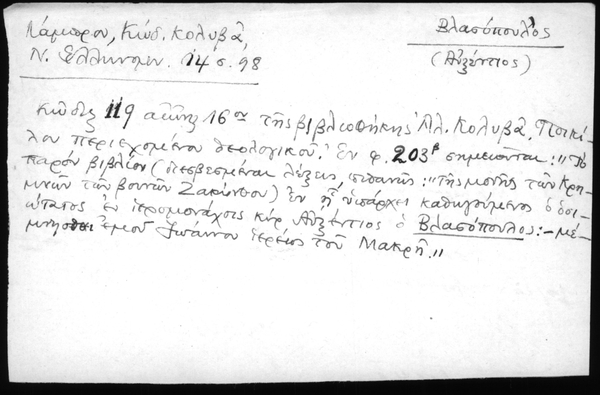 Λάμπρου, Κώδ. Κολυβᾶ,
Ν. Ἑλληνομν. 14 σ. 98
Βλασόπουλος
(Αὐξέντιος)
Κῶδιξ 119 αἰῶνος 16ου τῆς βιβλιοθήκης Ἀλ. Κολυβᾶ. Ποικί-
λου περιεχομένου θεολογικοῦ. Ἐν φ. 203β σημειοῦται: "Τὸ
παρὸν βιβλίον (ἐσβεσμέναι λέξεις, πιθανῶς: "τῆς μονῆς τῶν Κρη-
μνῶν τῶν βουνῶν Ζακύνθου) ἐν ᾗ ὑπάρχει καθηγούμενος ὁ ὁσι-
ώτατος ἐν ἱερομονάχοις κύρ Αὐξέντιος ὁ Βλασόπουλος:- μέ-
μνησθαι ἐμοῦ Ἰωάννου ἱερέως τοῦ Μακρῆ."